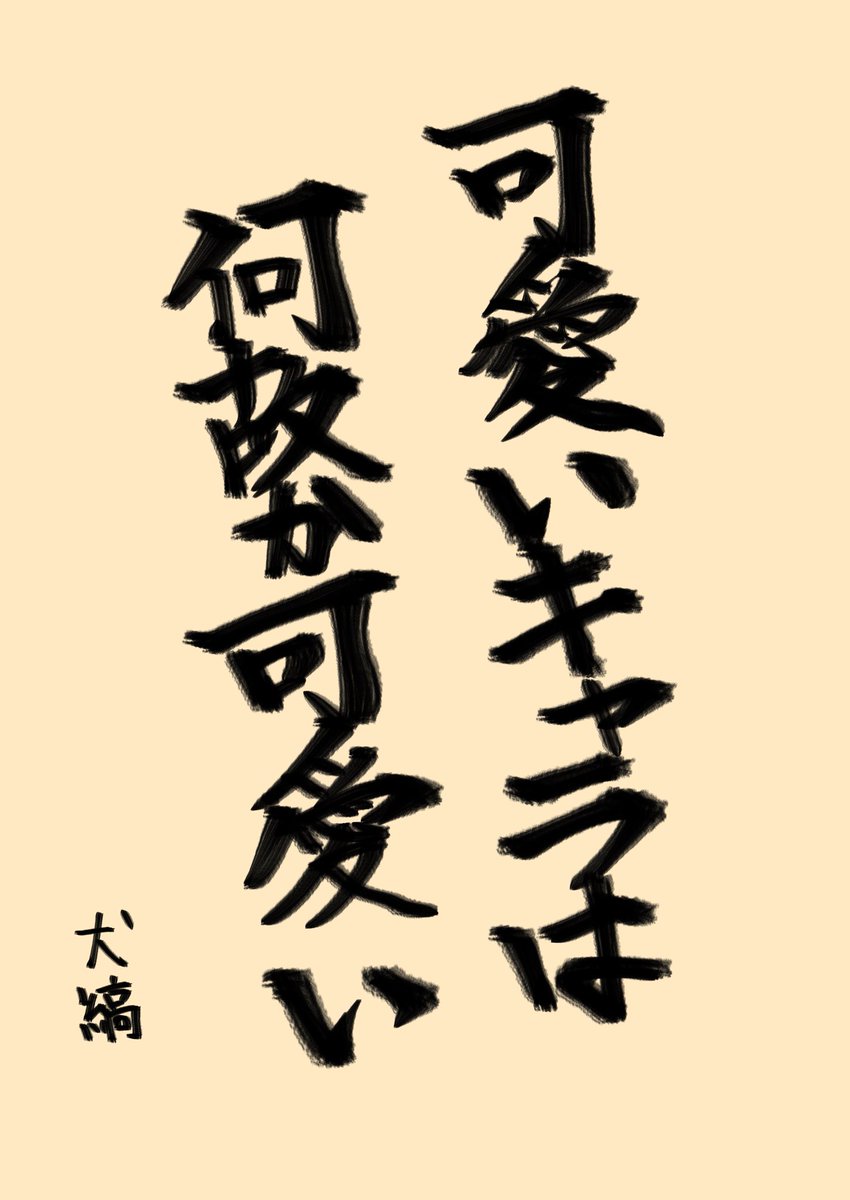 可愛いキャラは
何故か可愛い
犬縞